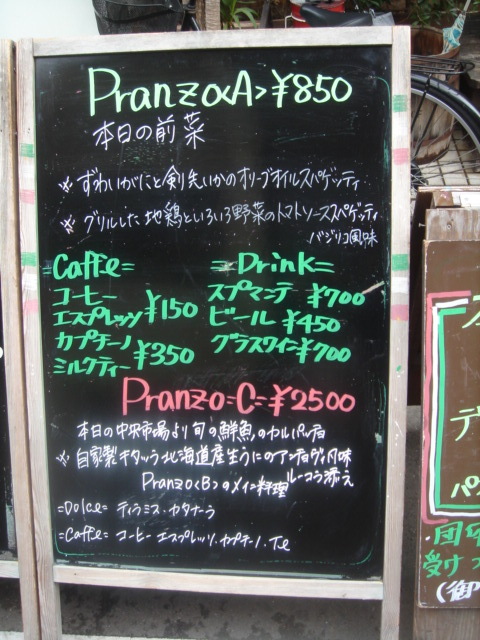 Pranzo<A>¥850
本日の前菜
※ ずわいがにと剣先いかのオリーブオイルスパゲッティ
※ グリルした地鶏といろいろ野菜のトマトソーススパゲッティ
バジリコ風味
=Caffe= =Drink=
コーヒー スプマンテ ¥700
エスプレッソ ¥150 ビール ¥450
カプチーノ グラスワイン ¥700
ミルクティー ¥350
Pranzo=C=¥2500
本日の中央市場より旬の鮮魚のカルパッチョ
※ 自家製キタッラ 北海道産生うにのアーリオオーリオ風味
Pranzo<B>のメイン料理 ルーコラ添え
=Dolce= ティラミス・カタナーラ
=Caffe= コーヒー エスプレッソ・カプチーノ・Te
デ
パン
・団体
受け
(御